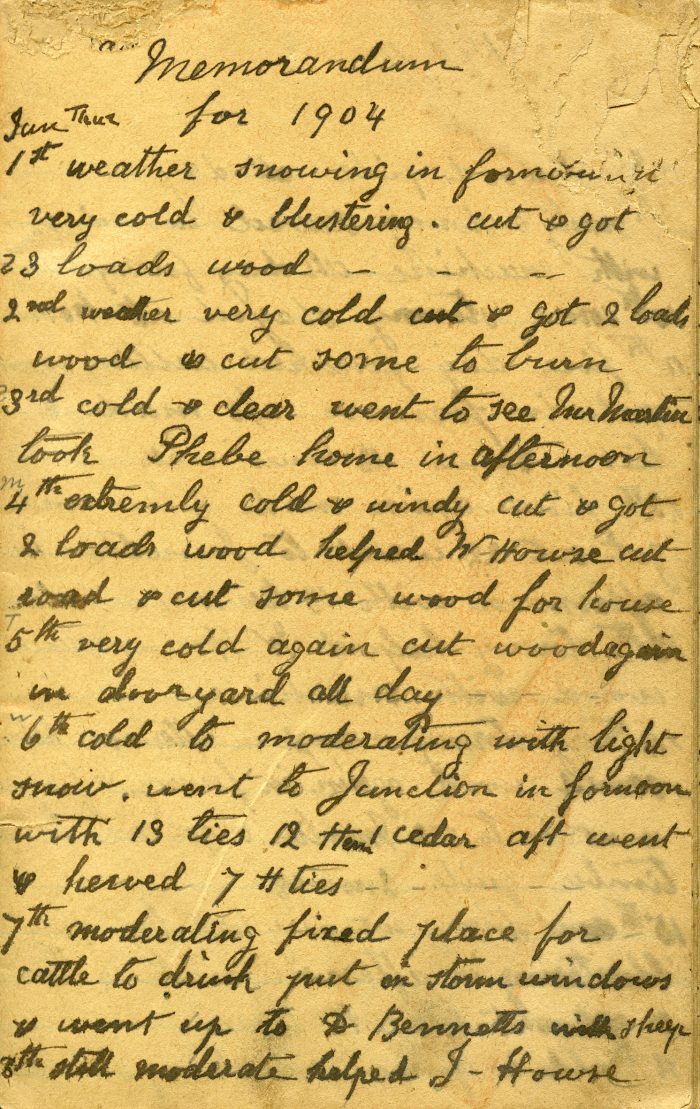 Memorandum
for 1904
Jan Thur
1st weather snowing in fornoon
very cold & blustering. cut & got
3 loads wood - - - -
2nd weather very cold cut & got 2 loads
wood & cut some to burn
3rd cold & clear went to see Mr Martin
took Phebe home in afternoon
M
4th extremly cold & windy cut & got
2 loads wood helped W-Howse cut
road & cut some wood for house
T
5th very cold again cut wood again
in door yard all day
W
6th cold to moderating with light
snow. went to Junction in fornoon
with 13 ties 12 Hem 1 cedar aft went
& hewed 7 H ties
7th moderating fixed place for
cattle to drink put on storm windows
& went up to D Bennetts with sheep
8th still moderate helped J-Howse